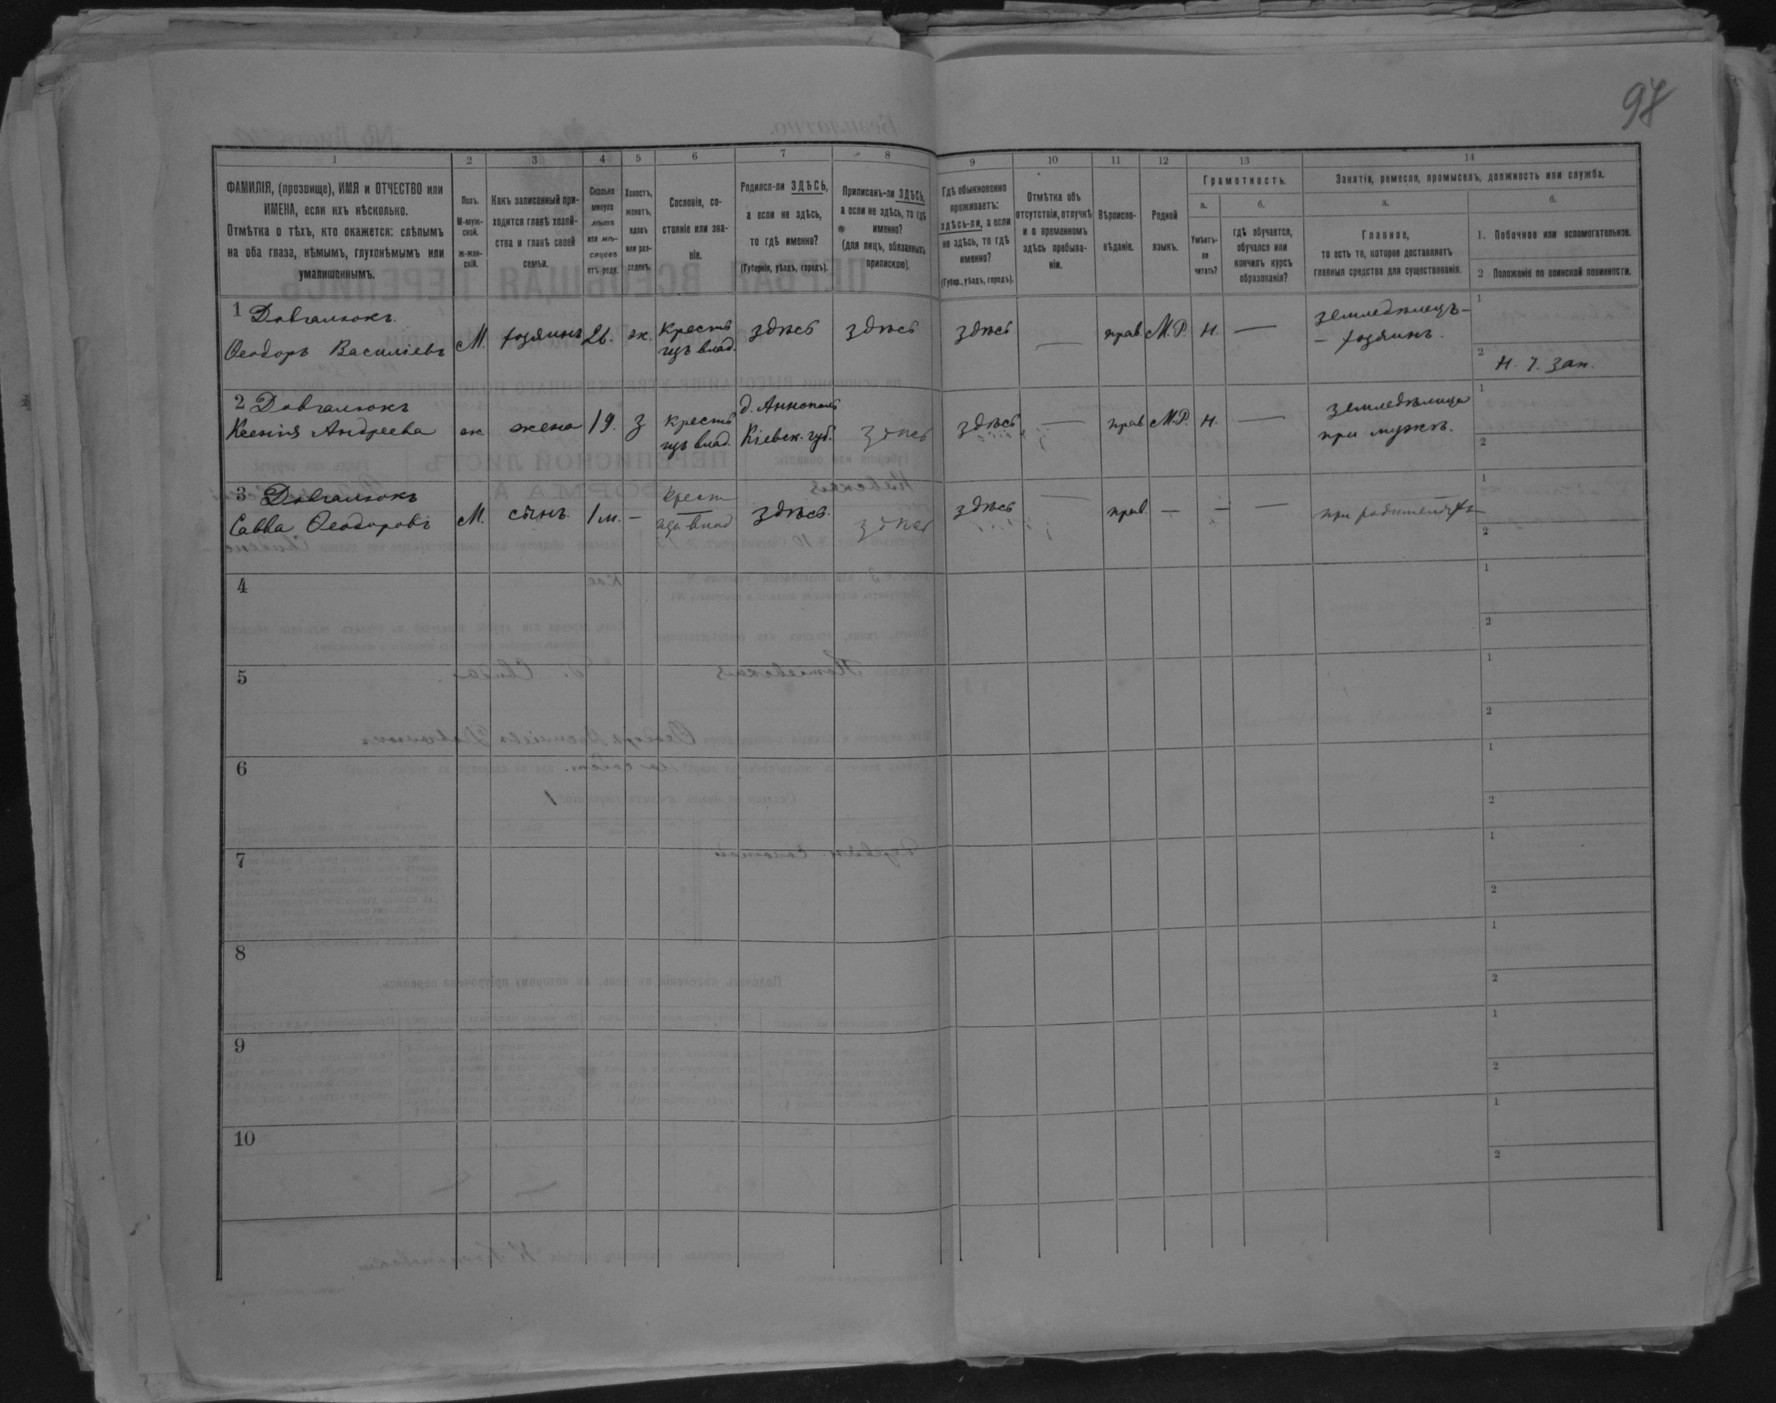 97
1 2 3 4 5 6 7 8 9 10 11 12 13 14
ФАМИЛІЯ, (прозвище), ИМЯ и ОТЧЕСТВО или
ИМЕНА, если ихъ нѣсколько.
Отмѣтка о тѣхъ, кто окажется: слѣпымъ
на оба глаза, нѣмымъ, глухонѣмымъ или
умалишеннымъ.
Полъ.
М-муж-
ской.
Ж-жен-
скій.
Какъ записанный при-
ходится главѣ хозяй-
ства и главѣ своей
семьи.
Сколько
минуло
лѣтъ
или мѣ-
сяцевъ
отъ роду.
Холостъ,
женатъ,
вдовъ
или раз-
веденъ.
Сословіе, со-
стояніе или зва-
ніе.
Родился-ли ЗДѢСЬ,
а если не здѣсь,
то гдѣ именно?
(Губернія, уѣздъ, городъ).
Приписанъ-ли ЗДѢСЬ,
а если не здѣсь, то гдѣ
именно?
(для лицъ, обязанныхъ
припискою).
Гдѣ обыкновенно
проживаетъ:
здѣсь-ли, а если
не здѣсь, то гдѣ
именно?
(Губер., уѣздъ, городъ).
Отмѣтка объ
отсутствіи, отлучкѣ
и о временномъ
здѣсь пребыва-
ніи.
Вѣроиспо-
вѣданіе.
Родной
языкъ.
Грамотность.
а.
Умѣетъ-
ли
читать?
б.
гдѣ обучается,
обучался или
кончилъ курсъ
образованія?
Занятіе, ремесло, промыселъ, должность или служба.
а.
Главное,
то есть то, которое доставляетъ
главныя средства для существованія.
б.
1. Побочное или вспомогательное.
2. Положеніе по воинской повинности.
1 Довгалюкъ
Ѳеодоръ Василіевъ М. хозяинъ 26. ж. крестъ изъ влад. здѣсь здѣсь здѣсь — прав М.Р. н. — земледѣлецъ-
- хозяинъ.
1
2 н. ч. зап.
2 Довгалюкъ
Ксенія Андреева ж жена 19. з крестъ изъ влад. д. Аннополь
Кіевск. губ. здѣсь здѣсь — прав М.Р. н. — земледѣлица
при мужѣ.
1
2
3 Довгалюкъ
Савва Ѳеодоровъ М. сынъ 1 м. — крест здѣсь. здѣсь здѣсь — прав — — — при родителяхъ
1
2
4
1
2
5
1
2
6
1
2
7
1
2
8
1
2
9
1
2
10
1
2